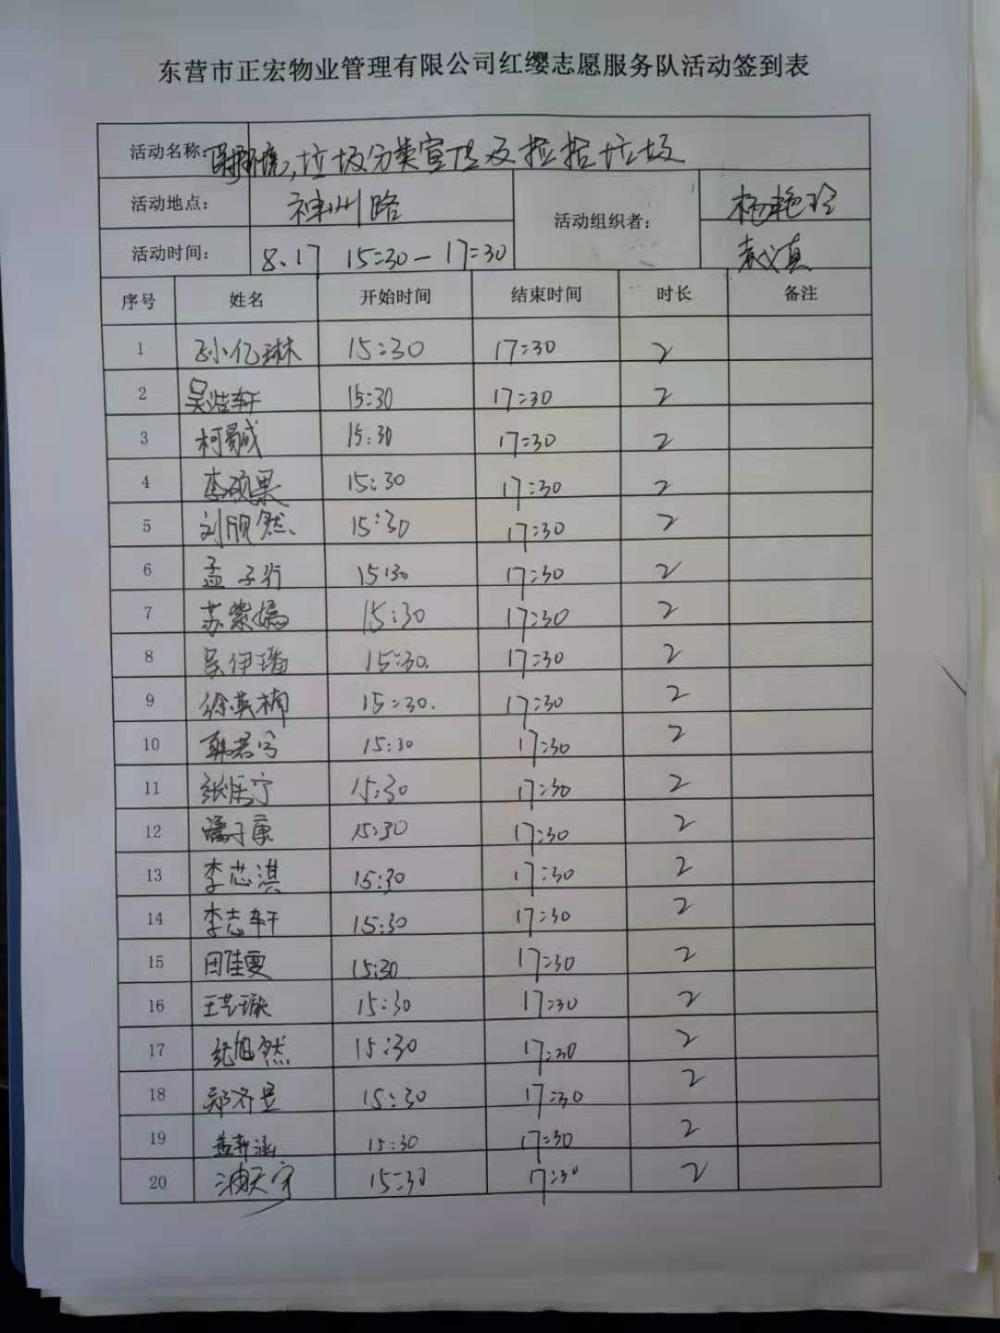 东营市正宏物业管理有限公司红缨志愿服务队活动签到表
活动名称: 保护环境,垃圾分类宣传及捡拾垃圾
活动地点: 神州路 活动组织者: 杨艳玲
活动时间: 8.17 15:30-17:30 袁义真
序号 姓名 开始时间 结束时间 时长 备注
1 孙亿琳 15:30 17:30 2
2 吴浩轩 15:30 17:30 2
3 柯 15:30 17:30 2
4 李硕果 15:30 17:30 2
5 刘欣然 15:30 17:30 2
6 孟子行 15:30 17:30 2
7 苏紫嫣 15:30 17:30 2
8 吴伊璠 15:30. 17:30 2
9 徐英楠 15:30. 17:30 2
10 韩君宁 15:30 17:30 2
11 张恬宁 15:30 17:30 2
12 潘子康 15:30 17:30 2
13 李芯淇 15:30 17:30 2
14 李志轩 15:30 17:30 2
15 田佳雯 15:30 17:30 2
16 王艺璇 15:30 17:30 2
17 纪旭然 15:30 17:30 2
18 郑济昱 15:30 17:30 2
19 盖弈涵 15:30 17:30 2
20 天宇 15:30 17:30 2